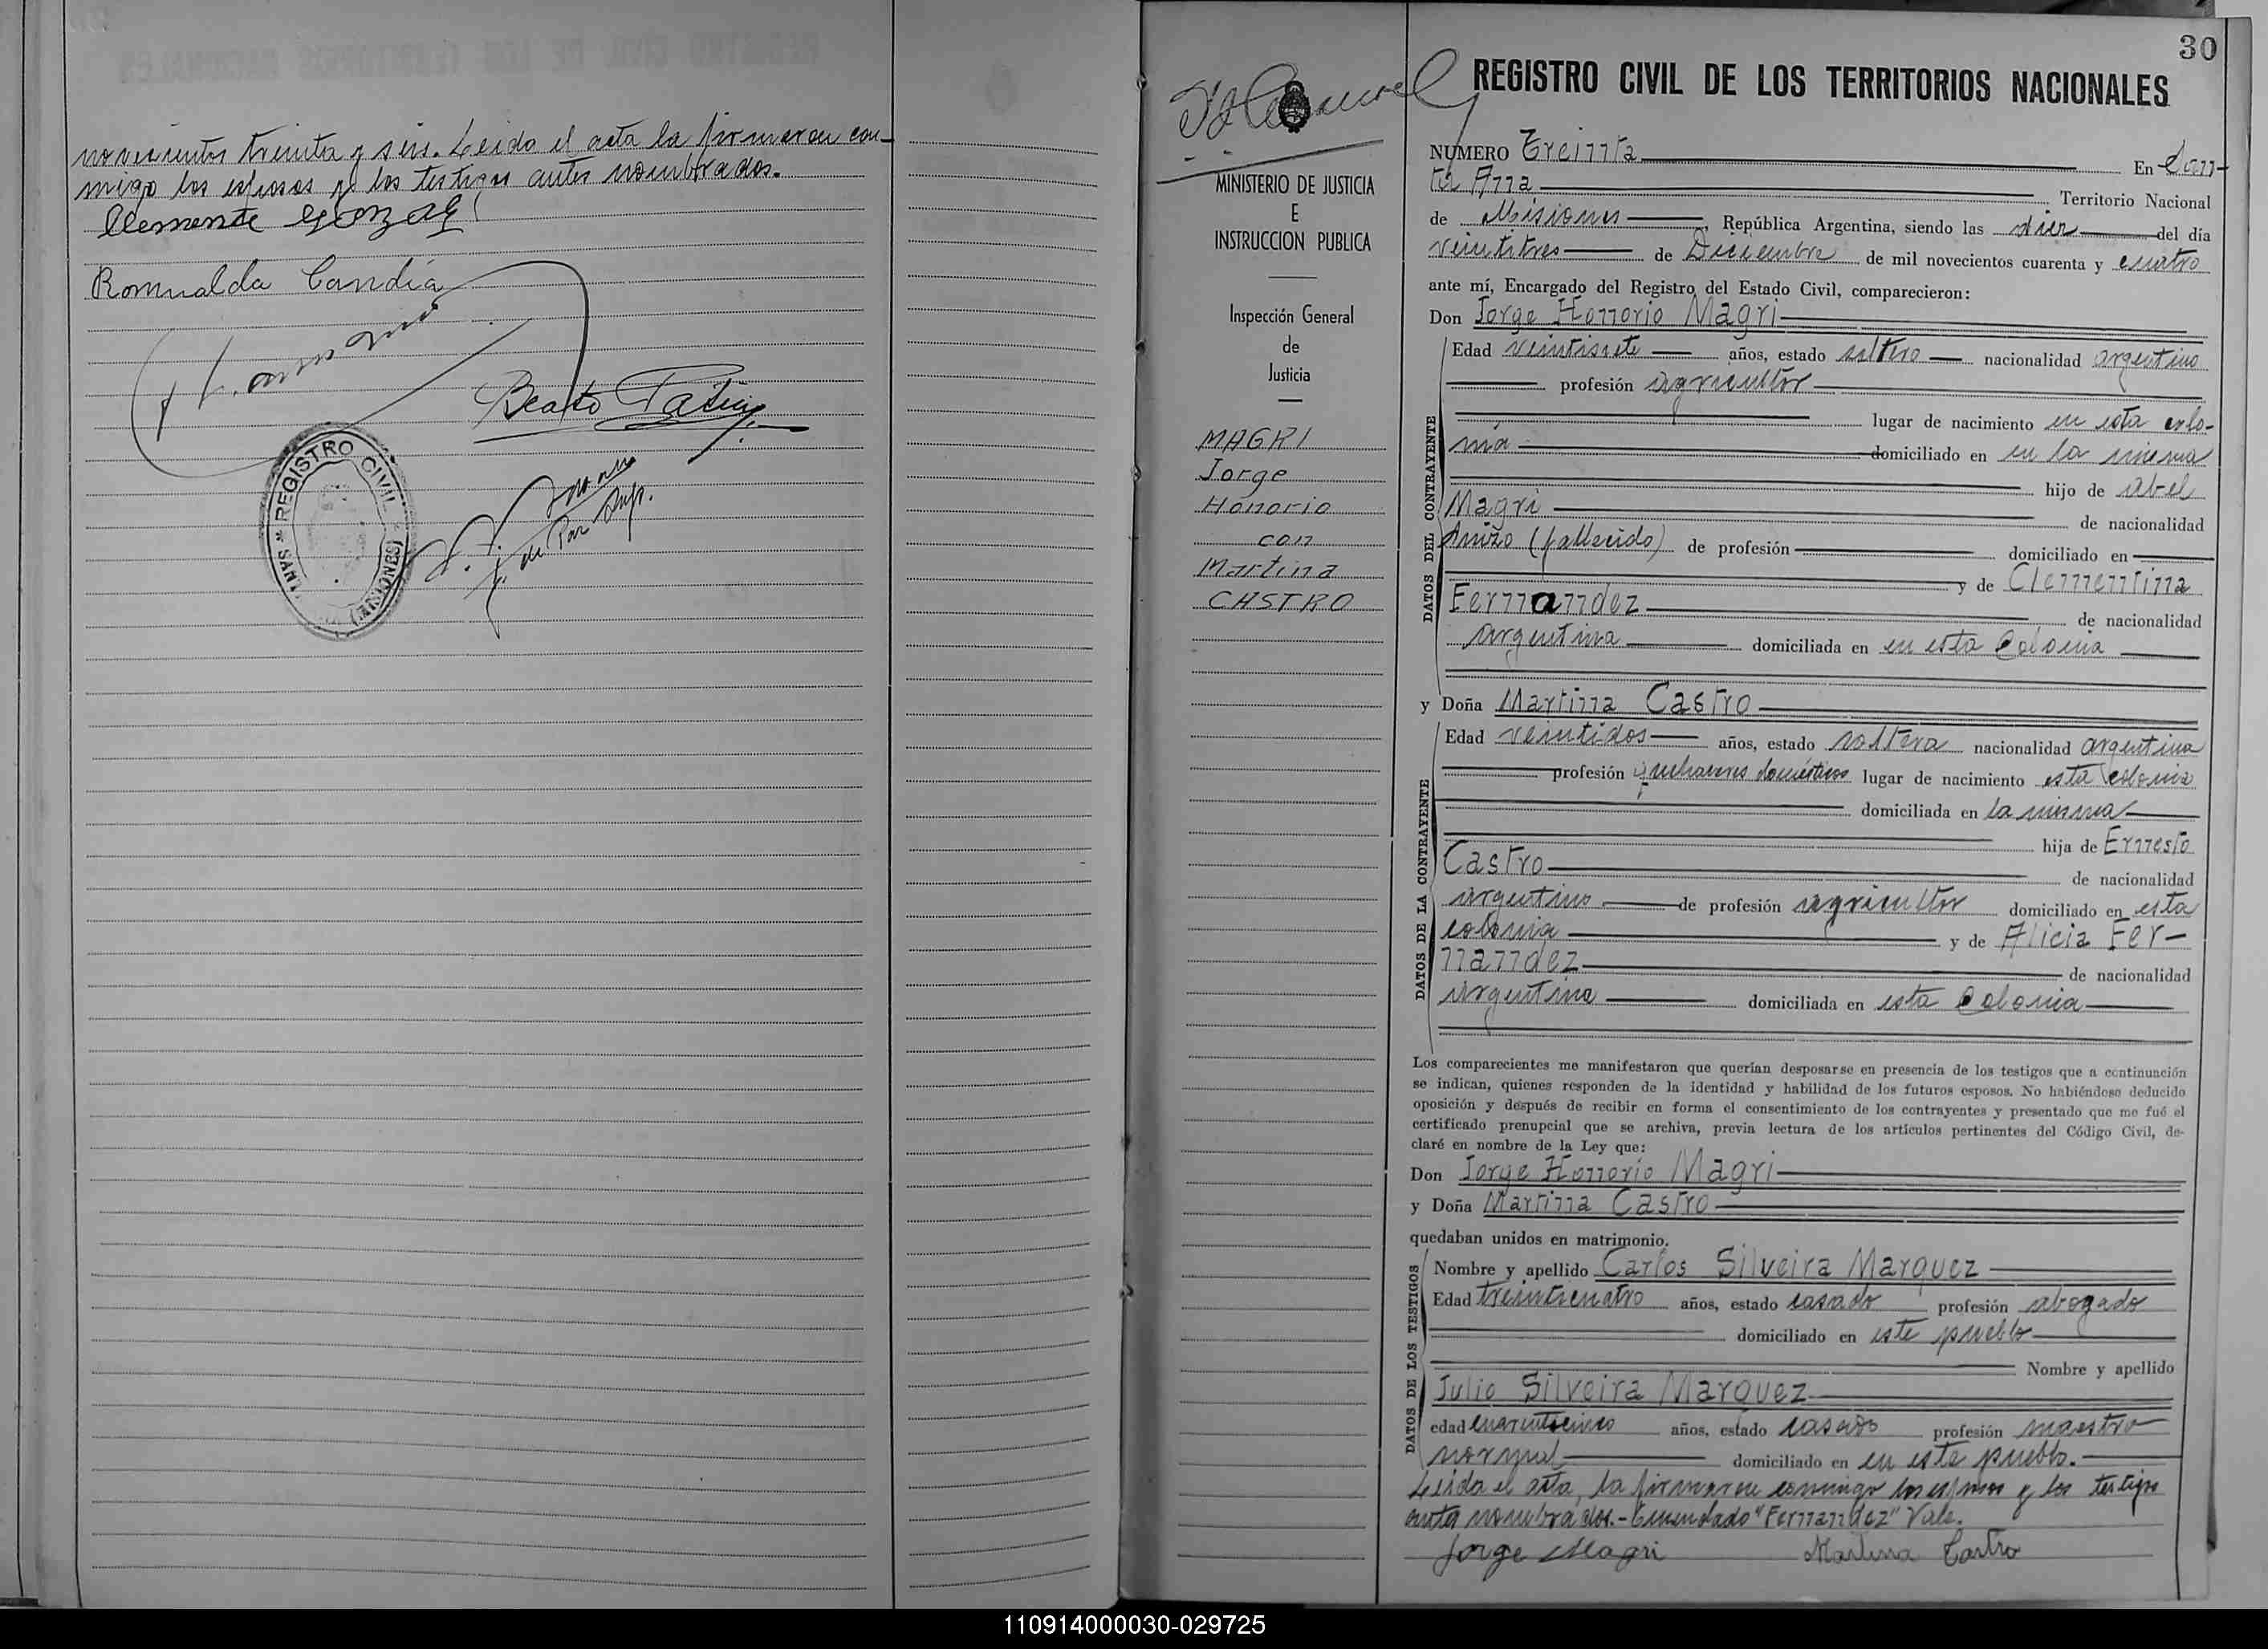 novecientos treinta y seis. Leido el acta la firmaron con-
migo los esposos y los testigos antes nombrados.
Clemente
Romualda Candia
Beato
REGISTRO CIVIL
30
REGISTRO CIVIL DE LOS TERRITORIOS NACIONALES
MINISTERIO DE JUSTICIA
E
INSTRUCCION PUBLICA
Inspección General
de
Justicia
MAGRI
Jorge
Honorio
con
Martina
CASTRO
NUMERO Treinta En San-
ta Ana Territorio Nacional
de Misiones República Argentina, siendo las diez del día
veintitres de Diciembre de mil novecientos cuarenta y cuatro
ante mí, Encargado del Registro del Estado Civil, comparecieron:
Don Jorge Honorio Magri
Edad veintisiete años, estado soltero nacionalidad argentino
profesión agricultor
lugar de nacimiento en esta colo-
nia domiciliado en en la misma
hijo de Abel
Magri de nacionalidad
Suizo (fallecido) de profesión domiciliado en
y de Clementina
Fernandez de nacionalidad
argentina domiciliada en en esta Colonia
DATOS DEL CONTRAYENTE
y Doña Martina Castro
Edad veintidos años, estado soltera nacionalidad argentina
profesión quehaceres domésticos lugar de nacimiento esta colonia
domiciliada en la misma
hija de Ernesto
Castro de nacionalidad
argentino de profesión agricultor domiciliado en esta
colonia y de Alicia Fer-
nandez de nacionalidad
argentina domiciliada en esta Colonia
DATOS DE LA CONTRAYENTE
Los comparecientes me manifestaron que querían desposarse en presencia de los testigos que a continuación
se indican, quienes responden de la identidad y habilidad de los futuros esposos. No habiéndose deducido
oposición y después de recibir en forma el consentimiento de los contrayentes y presentado que me fué el
certificado prenupcial que se archiva, previa lectura de los artículos pertinentes del Código Civil, de-
claré en nombre de la Ley que:
Don Jorge Honorio Magri
y Doña Martina Castro
quedaban unidos en matrimonio.
Nombre y apellido Carlos Silveira Marquez
Edad treinticuatro años, estado casado profesión abogado
domiciliado en este pueblo
Nombre y apellido
Julio Silveira Marquez
edad cuarenticinco años, estado casado profesión maestro
normal domiciliado en en este pueblo.
DATOS DE LOS TESTIGOS
Leida el acta, la firmaron conmigo los esposos y los testigos
antes nombrados.- Enmendado "Fernandez" Vale.
Jorge Magri Martina Castro
110914000030-029725